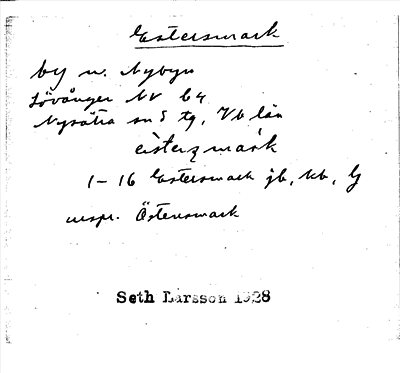 Estersmark
by n. Nybyn
Lövånger NV 64
Nysätra sn S tg, Vb län
èstersmàrk
1-16 Estersmark jb, kb, G
urspr. Östensmark
Seth Larsson 1928